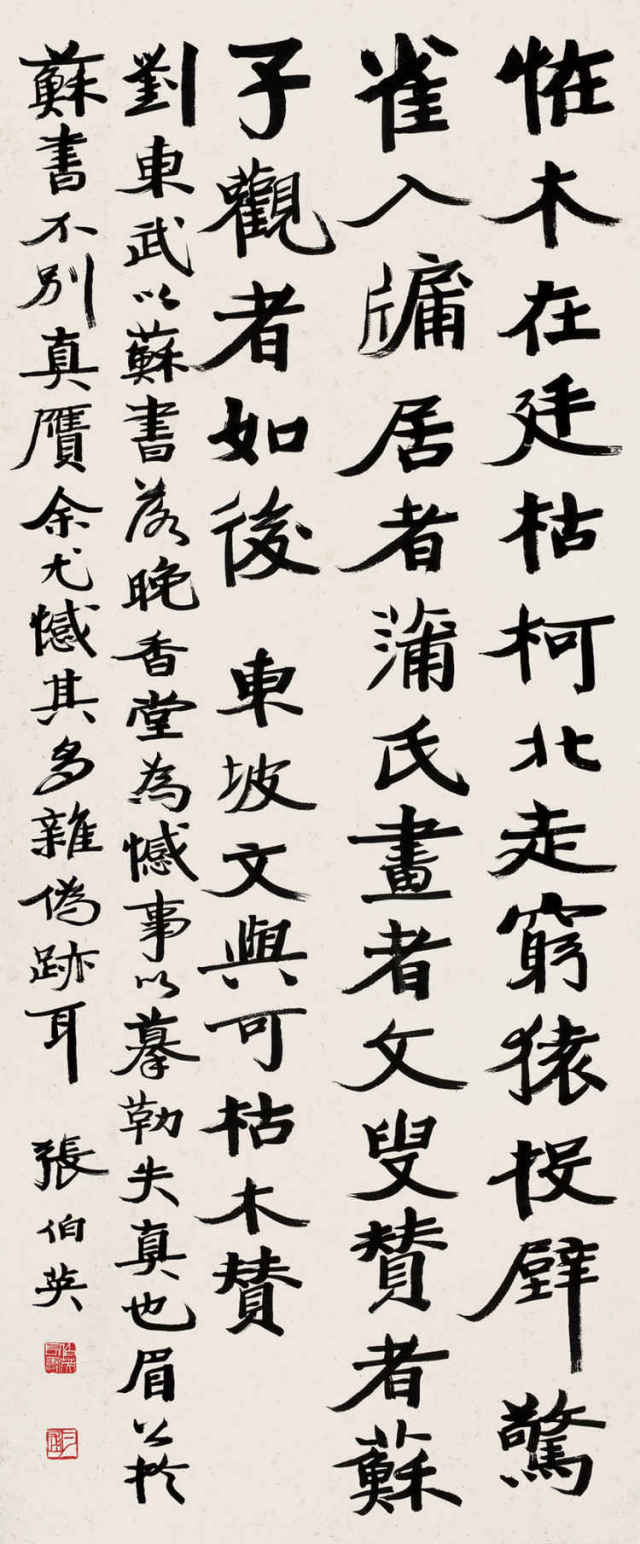 恠木在廷枯柯北走窮猿投壁驚
雀入牖居者蒲氏畫者文叟贊者蘇
子觀者如後 東坡文與可枯木贊
劉東武以蘇書茗晚香堂為憾事以摹勒失真也眉公於
蘇書不別真贗余尤憾其多雜偽跡耳 張伯英